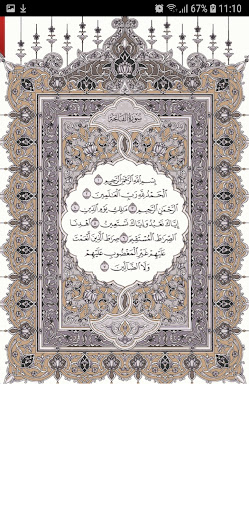 67% 11:10
سورة الفاتحة
بسم الله الرحمن الرحيم
الحمد لله رب العلمين
الرحمن الرحيم ملك يوم الدين
إياك نعبد وإياك نستعين اهدنا
الصرط المستقيم صرط الذين أنعمت
عليهم غير المغضوب عليهم
ولا الضالين